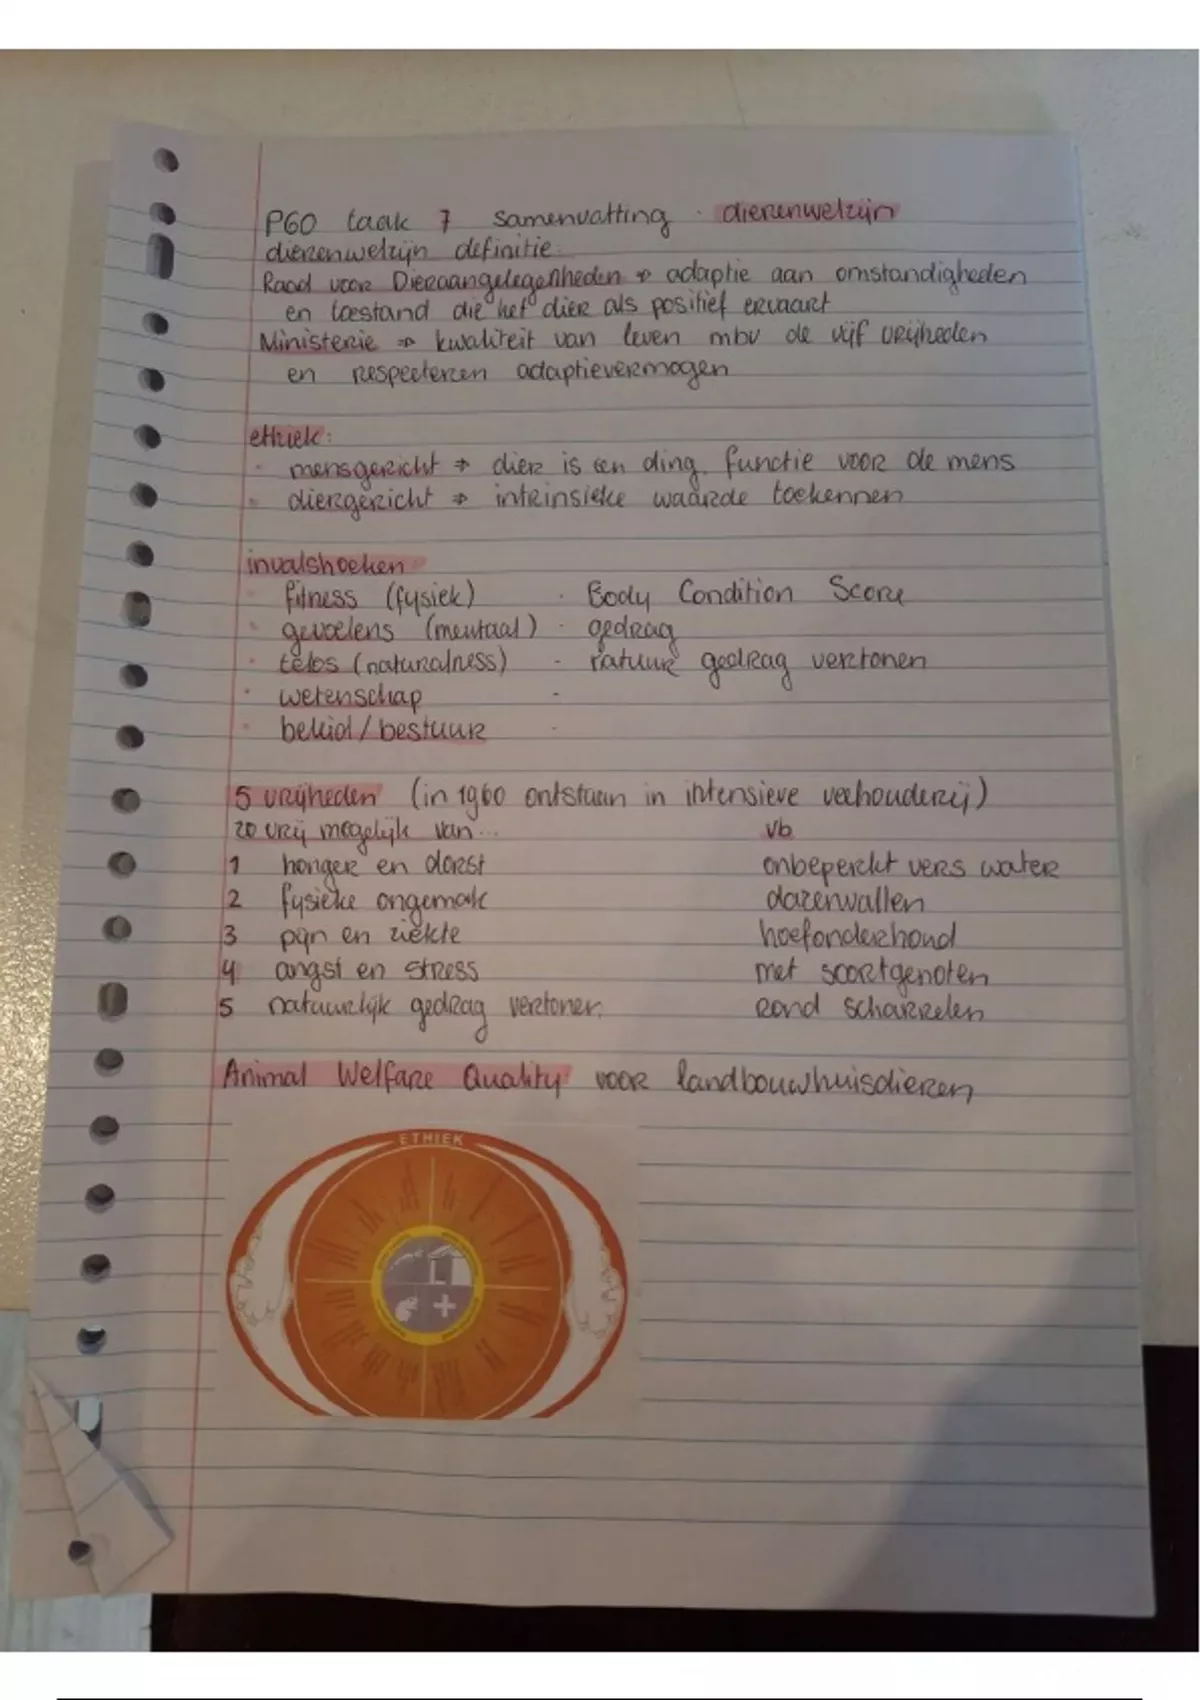 PGO taak 7 samenvatting · dierenwelzijn
dierenwelzijn definitie:
Raad voor Dieraangelegenheden ⇒ adaptie aan omstandigheden
en toestand die het dier als positief ervaart
Ministerie ⇒ kwaliteit van leven mbv de vijf vrijheden
en respecteren adaptievermogen
ethiek:
· mensgericht ⇒ dier is een ding, functie voor de mens
· diergericht ⇒ intrinsieke waarde toekennen
invalshoeken
· fitness (fysiek) · Body Condition Score
· gevoelens (mentaal) · gedrag
· telos (naturalness) - natuur gedrag vertonen
· wetenschap -
· beleid/bestuur -
5 vrijheden (in 1960 ontstaan in intensieve veehouderij)
zo vrij mogelijk van... vb
1 honger en dorst onbeperkt vers water
2 fysieke ongemak dazenvallen
3 pijn en ziekte hoefonderhoud
4 angst en stress met soortgenoten
5 natuurlijk gedrag vertonen. rond scharrelen
Animal Welfare Quality voor landbouwhuisdieren
ETHIEK